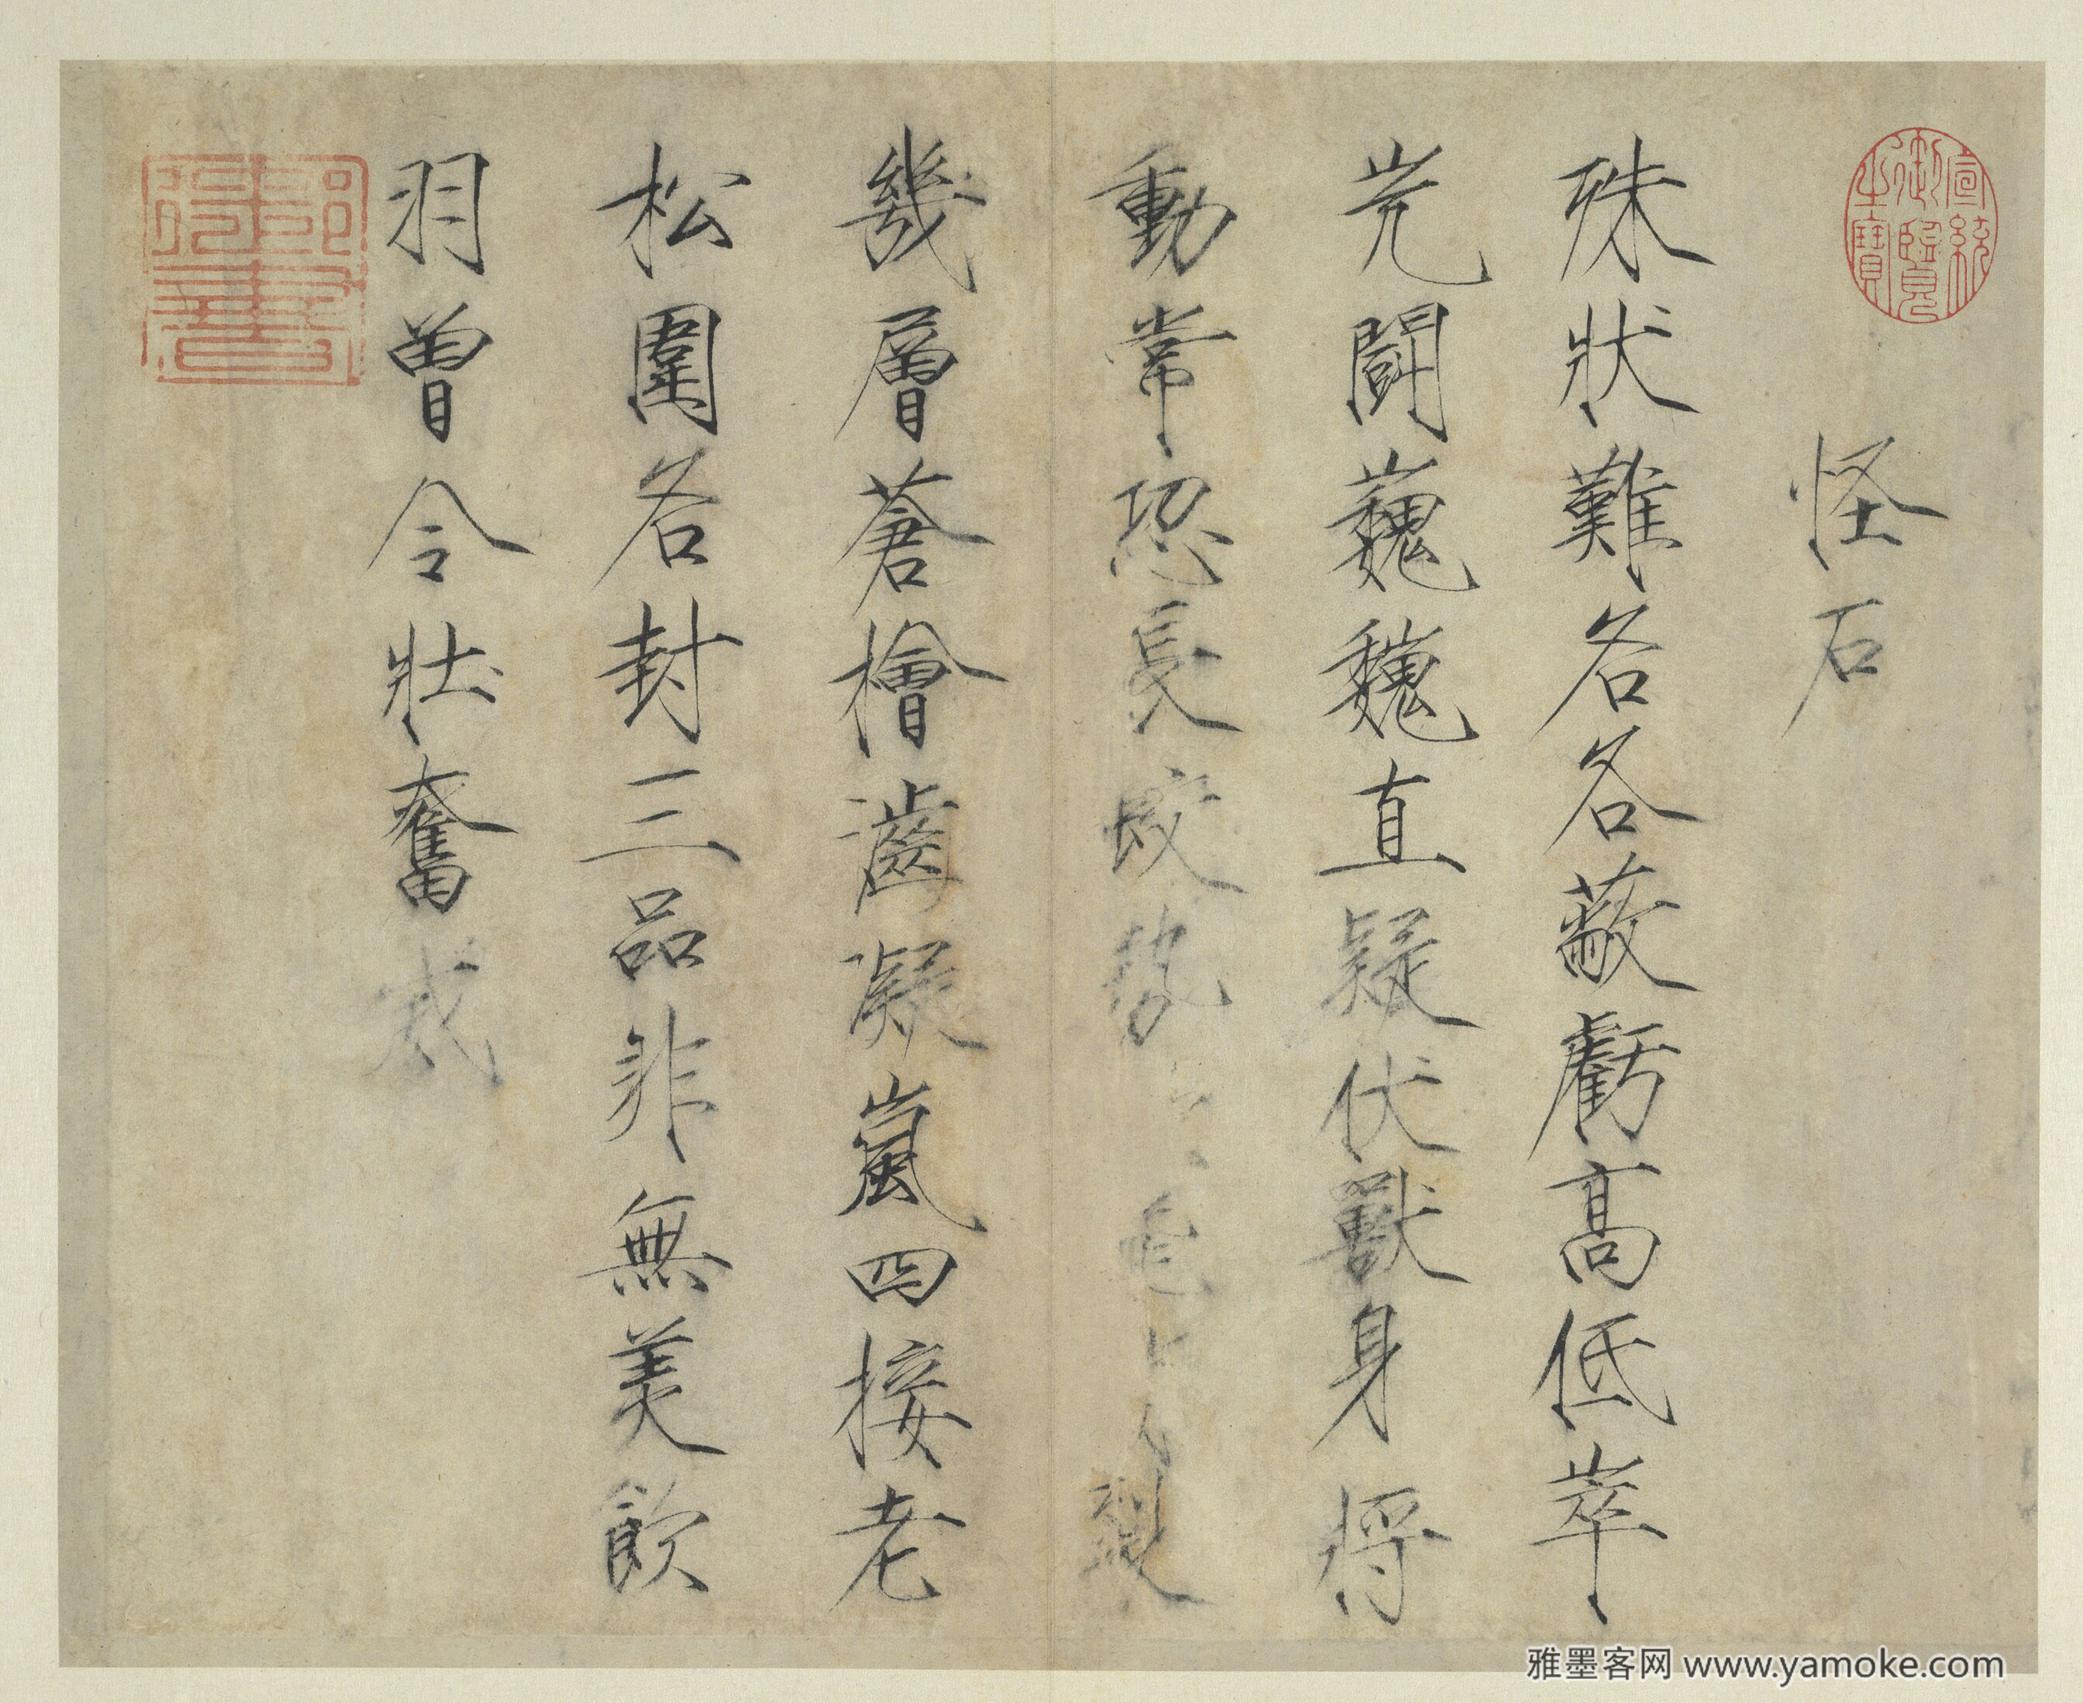 怪石
殊狀難名各蔽虧高低崒
屼闘巍巍直疑伏獸身將
動常恐長蛟勢
幾層蒼檜凝嵐四接老
松圍名封三品非無美飲
羽曾令壯奮威
宣統御覽之寶
雅墨客网 www.yamoke.com